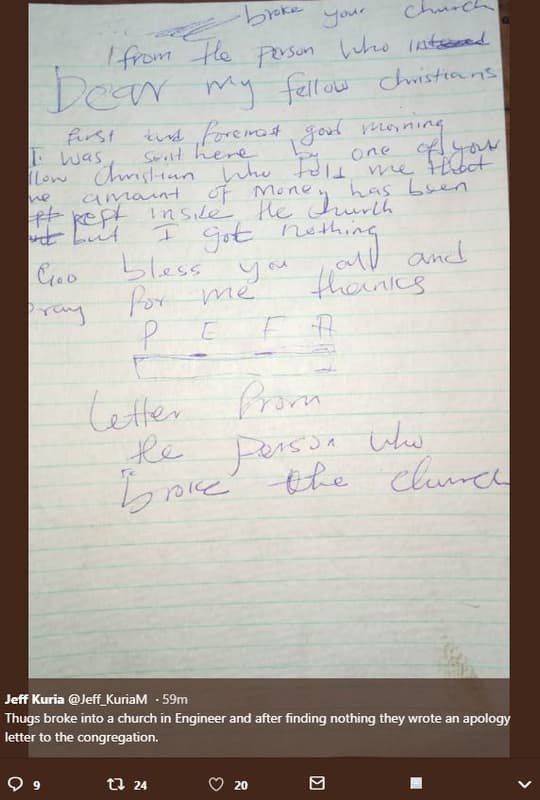 broke your church
from the person who
Dear my fellow Christians
first and foremost good morning
I was sent here by one of your
llow Christian who told me that
he amount of money has been
kept inside the church
but I got nothing
God bless you all and
pray for me thanks
P E F A
Letter from
the person who
broke the church
Jeff Kuria @Jeff_KuriaM · 59m
Thugs broke into a church in Engineer and after finding nothing they wrote an apology
letter to the congregation.
9 24 20